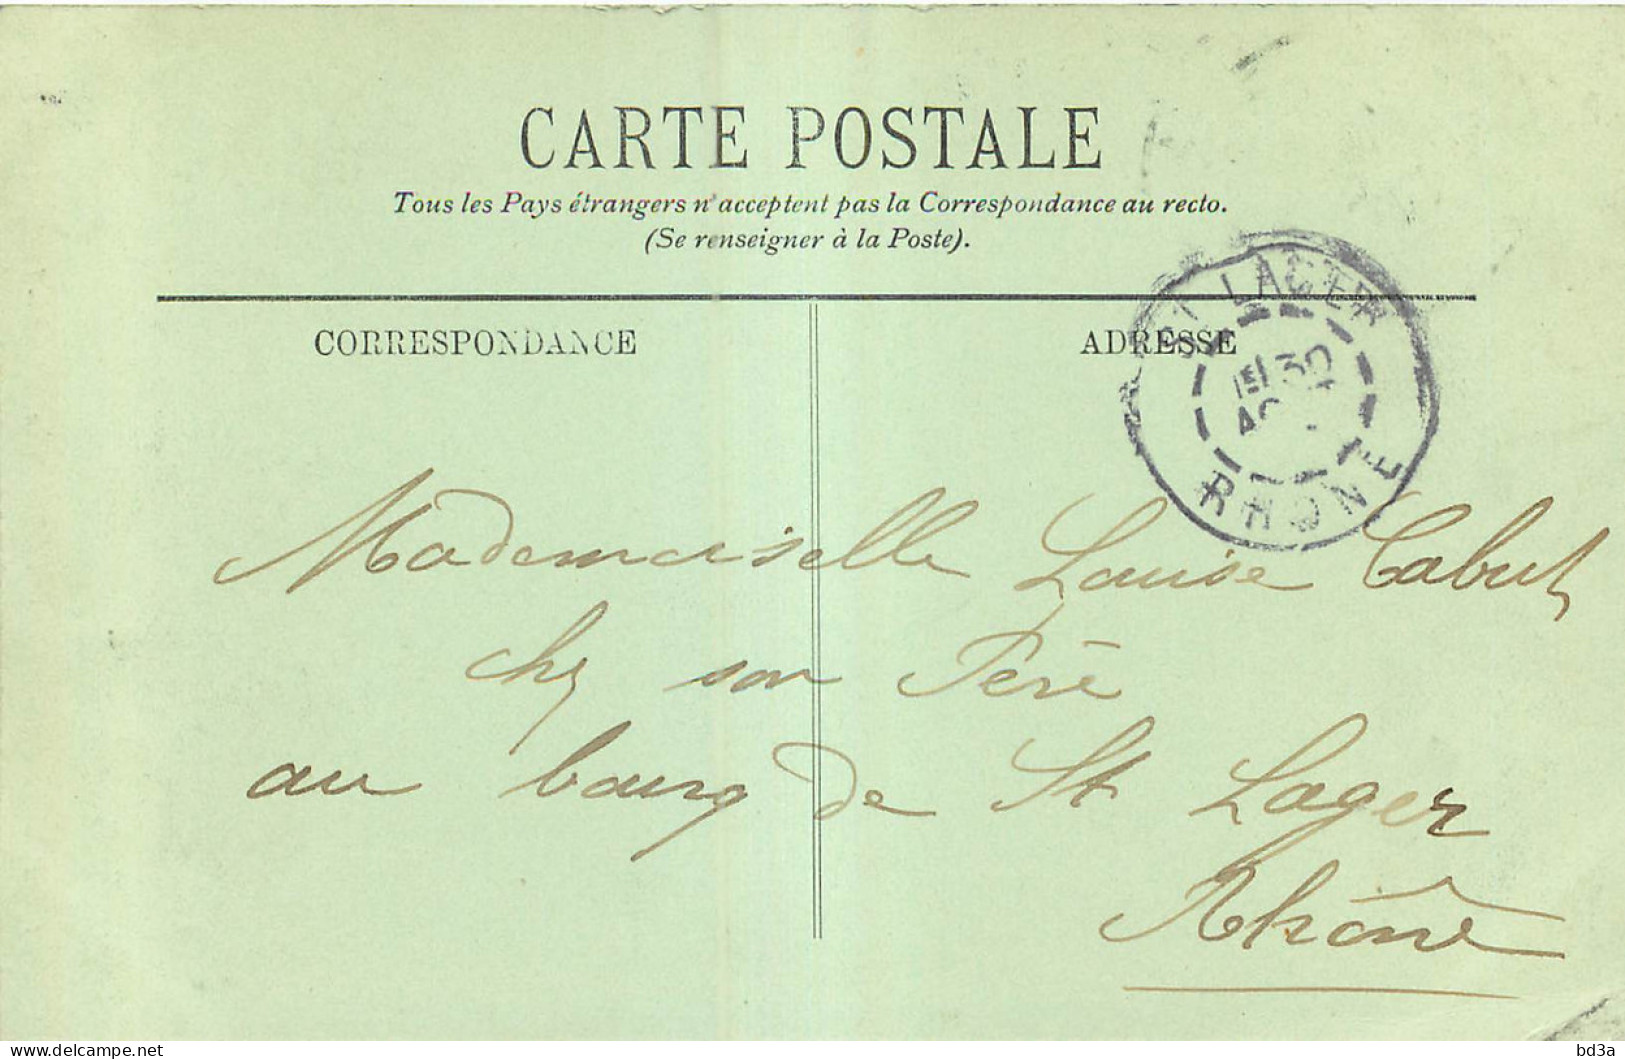 CARTE POSTALE
Tous les Pays étrangers n'acceptent pas la Correspondance au recto.
(Se renseigner à la Poste).
CORRESPONDANCE
ADRESSE
ST LAGER
30
RHONE
Mademoiselle Louise Cabut
chez son Père
au bourg de St Lager
Rhône
bd3a